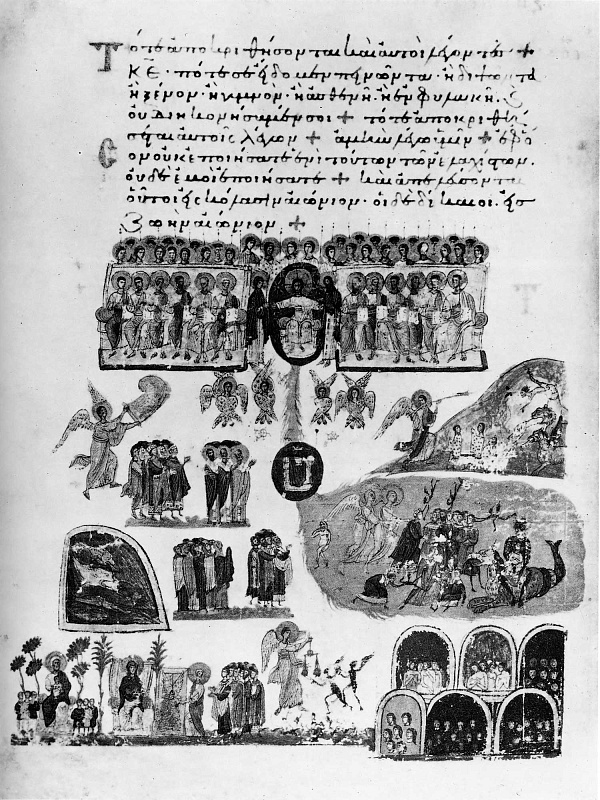 Τότε ἀποκριθήσονται καὶ αὐτοὶ λέγοντες +
Κ̅Ε̅ · πότε σε εἴδομεν πεινῶντα · ἢ διψῶντα
ἢ ξένον · ἢ γυμνὸν · ἢ ἀσθενῆ · ἢ ἐν φυλακῆ · ϗ
οὐ διηκονήσαμέν σοι + τότε ἀποκριθή
σεται αὐτοῖς λέγων + ἀμὴν λέγω ὑμῖν + ἐφ' ὅ
σον οὐκ ἐποιήσατε ἑνὶ τούτων τῶν ἐλαχίστων ·
οὐδὲ ἐμοὶ ἐποιήσατε + καὶ ἀπελεύσονται
οὗτοι εἰς κόλασιν αἰώνιον · οἱ δὲ δίκαιοι · εἰς
ζωὴν αἰώνιον +